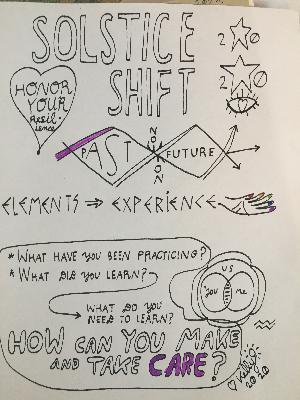 SOLSTICE
SHIFT
2 0
2 0
HONOR
YOUR
Resil-
ience
PAST
NOTION
FUTURE
ELEMENTS ⇒ EXPERIENCE
* WHAT HAVE YOU BEEN PRACTICING?
* WHAT DID YOU LEARN?
WHAT DO YOU
NEED TO LEARN?
US
You
me
HOW CAN YOU MAKE
AND TAKE CARE?
Kelli
2020